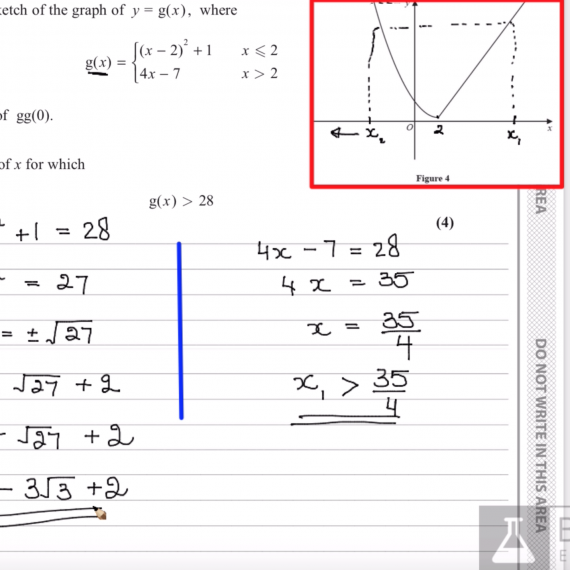 ketch of the graph of y = g(x), where
g(x) = { (x − 2)² + 1   x ⩽ 2
4x − 7   x > 2
of gg(0).
of x for which
g(x) > 28
(4)
y
O
2
x₂
x₁
x
Figure 4
+1 = 28
= 27
= ±√27
√27 + 2
- √27 + 2
- 3√3 + 2
4x − 7 = 28
4x = 35
x = 35/4
x₁ > 35/4
REA
DO NOT WRITE IN THIS AREA
E
E